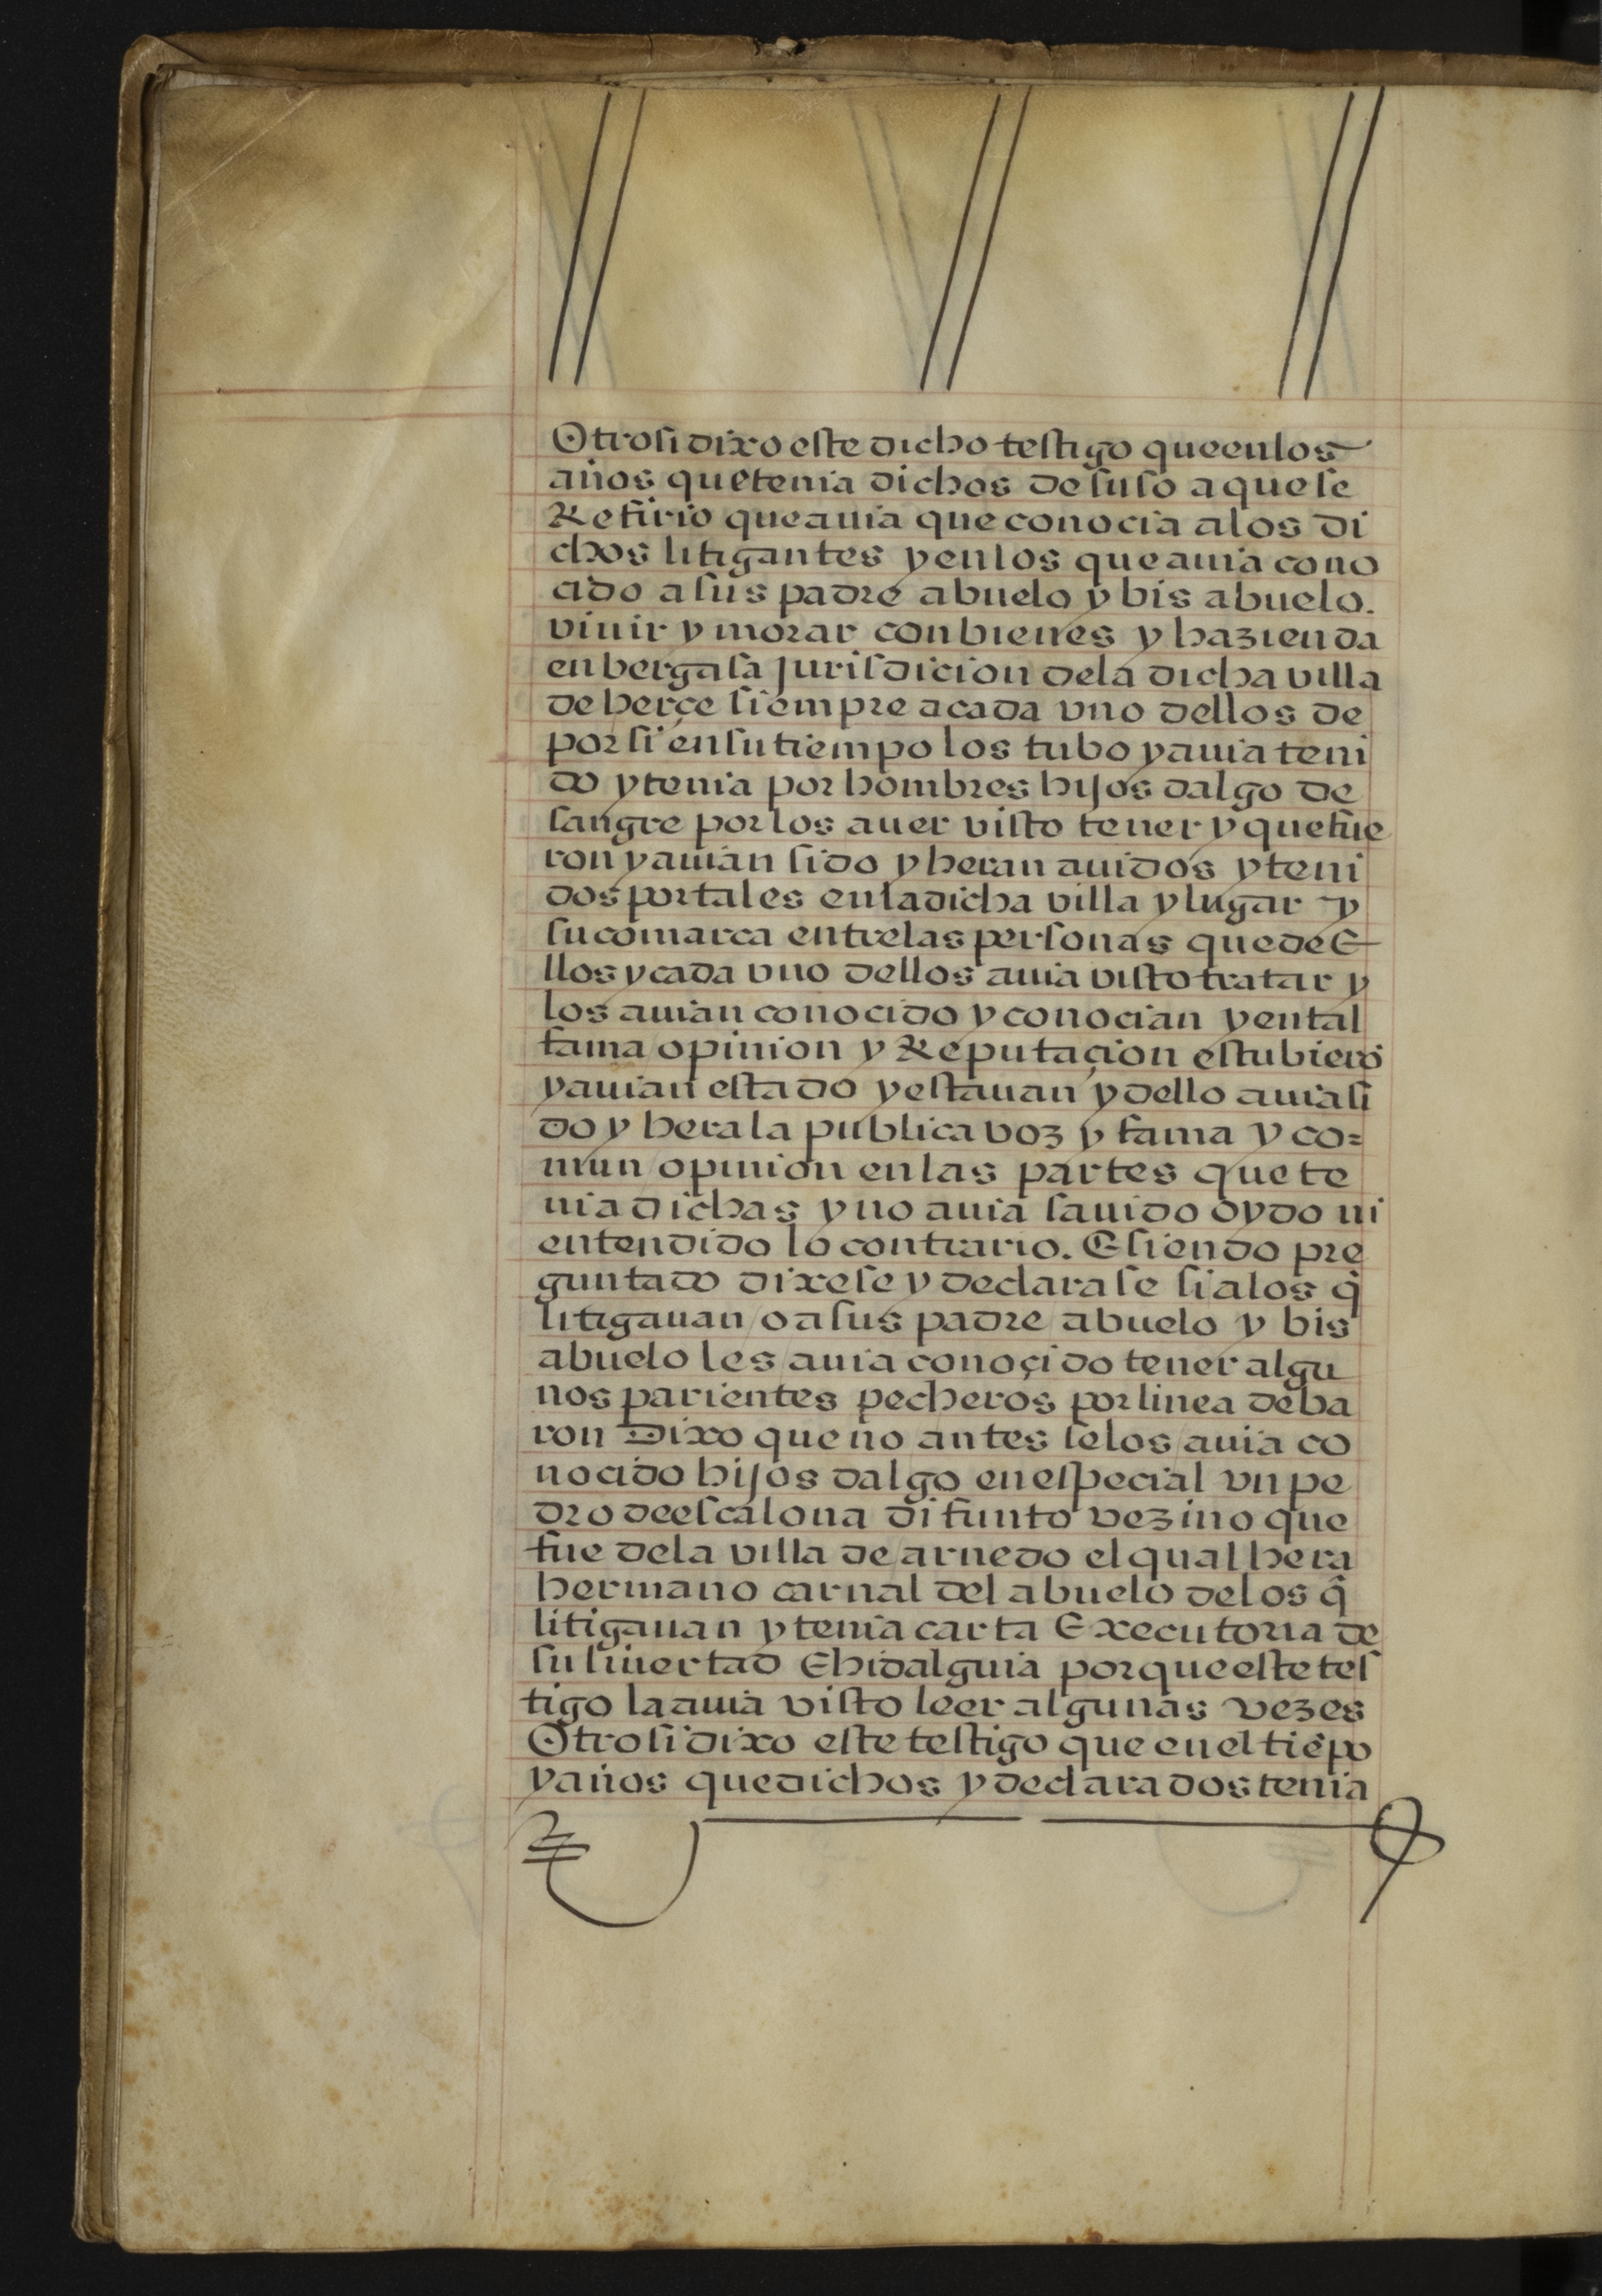 Otrosi dixo este dicho testigo que en los
años que tenia dichos de suso a que se
Refirio que auia que conocia a los di
chos litigantes y en los que auia cono
cido a sus padre abuelo y bis abuelo.
viuir y morar con bienes y hazienda
en bergasa jurisdicion de la dicha villa
de herçe siempre a cada vno dellos de
por si en su tiempo los tubo y auia teni
do y tenia por hombres hijos dalgo de
sangre por los auer visto tener y que fue
ron y auian sido y heran auidos y teni
dos por tales en la dicha villa y lugar y
su comarca entre las personas que de E
llos y cada vno dellos auia visto tratar y
los auian conocido y conocian y en tal
fama opinion y Reputaçion estubierō
y auian estado y estauan y dello auia si
do y hera la publica voz y fama y co=
mun opinion en las partes que te
nia dichas y no auia sauido oydo ni
entendido lo contrario. E siendo pre
guntado dixese y declarase si a los q̄
litigauan o a sus padre abuelo y bis
abuelo les auia conoçido tener algu
nos parientes pecheros por linea de ba
ron Dixo que no antes se los auia co
nocido hijos dalgo en especial vn pe
dro de escalona difunto vezino que
fue de la villa de arnedo el qual hera
hermano carnal del abuelo de los q̄
litigauan y tenia carta Executoria de
su liuertad E hidalguia porque este tes
tigo la auia visto leer algunas vezes
Otrosi dixo este testigo que en el tiēpo
y años que dichos y declarados tenia